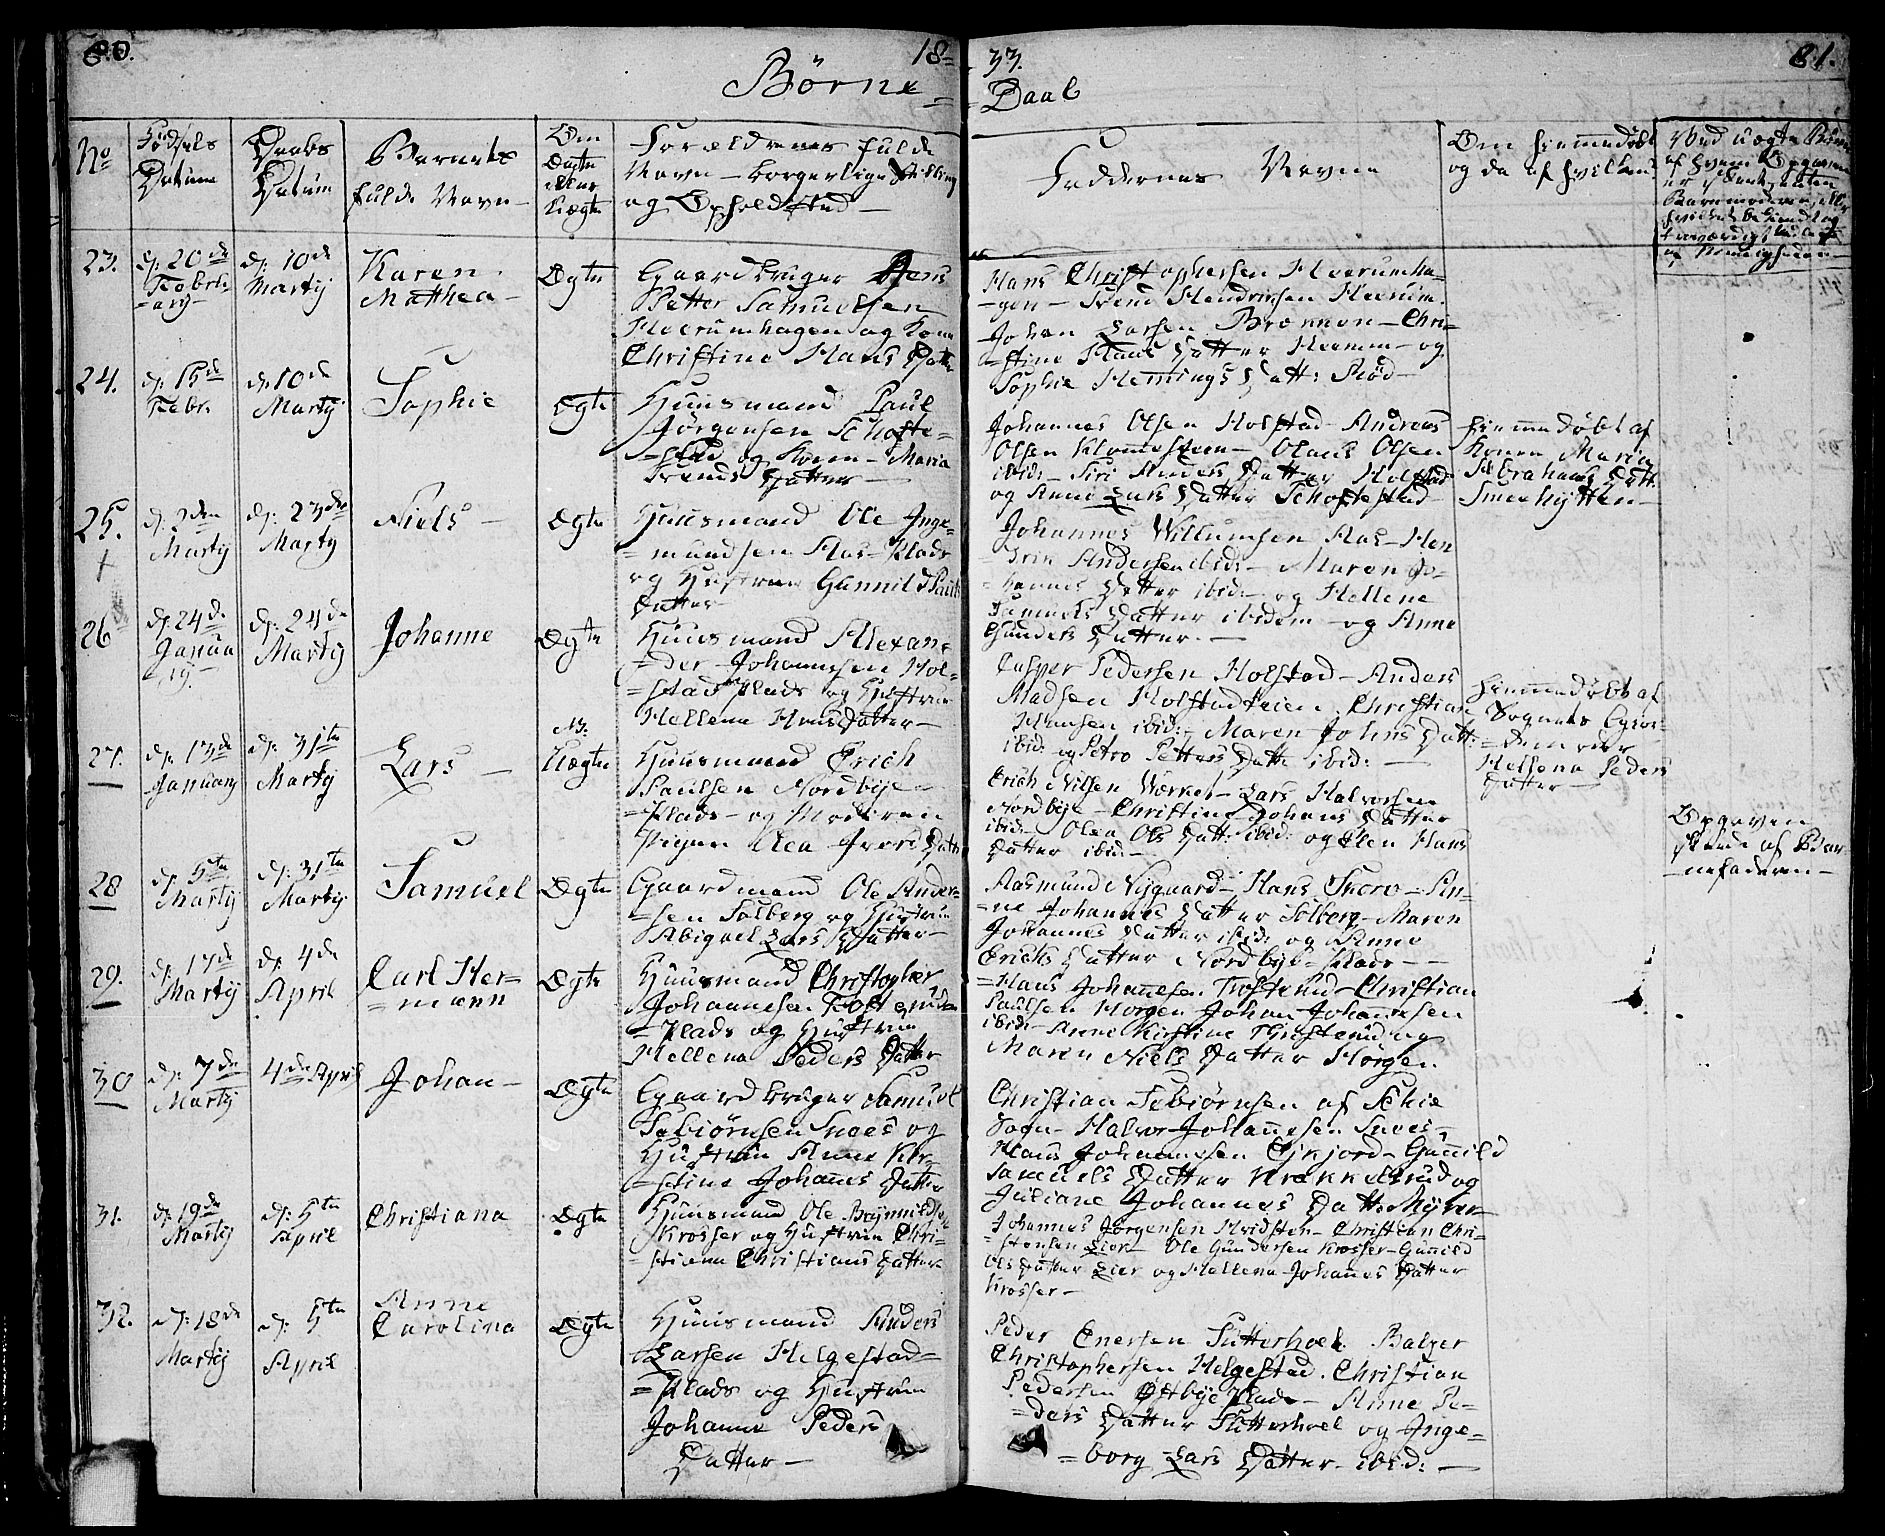 80.
18
33.
81.
Børne
Daab
No
Fødsels Datum
Daabs Datum
Barnets fulde Navn
Om Ægte eller Uægte
Forældrenes fulde Navn - borgerlige Stilling og Opholdssted
Faddernes Navne
Om hiemmedøbt og da af hvilken
Ved uægte Børn
23.
d. 20de Febru-
ary
d: 10de Marty
Karen
Matthea
Ægte
Gaardbruger Jens
Petter Samuelsen
Heerumhagen og Kone
Christine Hans Datter
Hans Christophersen Heerumha-
-gen - Svend Hendrichsen Heerum.
Johan Larsen Brønnen - Chri-
=stine Hans Datter Heerum - og
Sophie Hemings Datt: Rød -
24.
d. 15de Febr.
d. 10de Marty
Sophie
Ægte
Huusmand Paul
Jørgensen Schofte-
=stad og Kone - Maria
Svends Datter
Johannes Olsen Holstad - Andreas
Olsen Klommesteen - Olaus Olsen
ibid: - Siri Anders Datter Holstad
og Anne Lars Datter Schoftestad
hiemmedøbt af
Konen Maria
Abrahams Datt.
Smedhytten -
25.
+
d. 2den Marty
d: 23de Marty
Niels -
Ægte
Huusmand Ole Inge-
=mundsen Aas-Plads
og Hustrue Gunnild Pauls
Datter
Johannes Willumsen Aas - Hen
drik Andersen ibid: - Maren Jo-
=hannes Datter ibid: - og Hellene
Samuels Datter ibidem - og Anne
Gunders Datter. -
26
d. 24de Janua
ry.
d: 24de Marty
Johanne
Ægte
Huusmand Alexan-
=der Johannesen Hol-
=stad Plads og Hustrue
Hellena Hans Datter -
Casper Pedersen Holstad - Anders
Madsen Holstadteien. Christian
Hansen ibid: - Maren Johns Datt:
ibid: og Petro Petters Datt ibid: -
hiemmedøbt af
Sognets Gjor-
=demoder
Hellena Peders
Datter -
27.
d. 13de January
d. 31te Marty
Lars -
NB:
Uægte
Huusmand Erich
Paulsen Nordbye -
=Plads - og Moderen
Pigen Olea Ivers Datt
Erich Nilsen Værker - Lars Halvorsen
Nordbye - Christine Johans Datter
ibid: - Olea Ols Datt: ibid: og Elen Hans
Datter ibid: -
Opgaven
skeede af Bar-
=nefaderen -
28
d. 5te Marty
d: 31te Marty
Samuel
Ægte
Gaardmand Ole Ander-
=sen Solberg og Hustrue
Abigael Lars Datter -
Aasmund Nygaard - Hans Skoro - An-
=ne Johannes Datter Solberg - Maren
Johannes Datter ibid: og Anne
Erichs Datter Nordbye-Plads -
29.
d. 17de Marty
d. 4de April
Carl Her-
=mann
Ægte
Huusmand Christopher
Johannesen Tostrud
=Plads og Hustrue
Hellena Peders Datter
=Hans Johannesen Trosterud - Christian
Paulsen Horgen Johan Johannesen
ibid: - Anne Kirstine Trosterud og
Maren Niels Datter Horgen
30
d. 7de Marty
4de April
Johan -
Ægte
Gaardbruger Samuel
Tobiørnsen Snees og
Hustrue Anne Kir-
=stine Johannes Datter
Christian Tobiørnsen af Schie
Sogn - Halvor Johannesen Snees -
Hans Johannesen Egnjord - Gunnild
Samuels Datter Krokkelsrud og
Juliane Johannes Datt: Myrer
31.
d. 19de Marty
d: 5te April
Christiana
Ægte
Huusmand Ole
Krosser og Hustrue Chri-
=stiana Christians Datter
Johannes Jørgensen Hvidsten - Christian Chri-
=stensen Lier - Ole Gundersen Krosser - Gunnild
Ols Datter Lier og Hellena Johannes Datter
Krosser -
32.
d: 18de Marty
d: 5te April
Anne
Carolina
Ægte
Huusmand Anders
Larsen Helgestad-
=Plads og Hustrue
Johanne Peders
Datter -
Peder Enersen Sutterhoel. Balzer
Christophersen Helgestad. Christian
Pedersen Østbye Plads - Anne Pe-
=ders Datter Sutterhoel og Inge-
=borg Lars Datter ibid: -